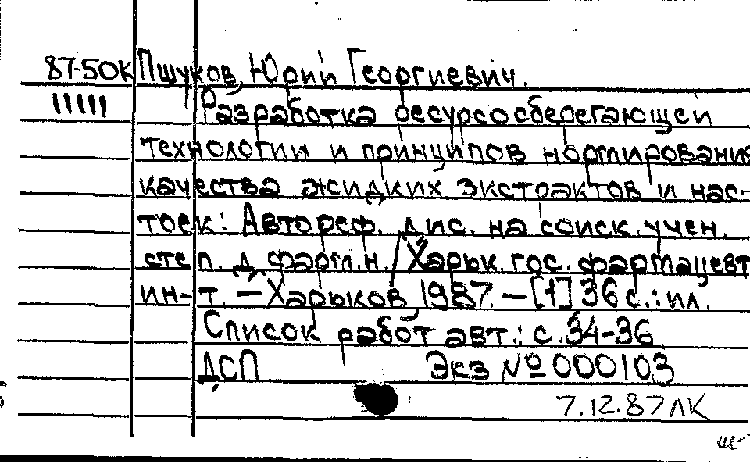 87-50К Пшуков, Юрий Георгиевич.
11111 Разработка ресурсосберегающей
технологии и принципов нормирования
качества жидких экстрактов и нас-
тоек: Автореф. дис. на соиск. учен.
степ. д. фарм. н. / Харьк. гос. фармацевт
ин-т. — Харьков, 1987. — [1] 36 с.: ил.
Список работ авт.: с. 34-36
ДСП Экз № 000103
7.12.87 ЛК